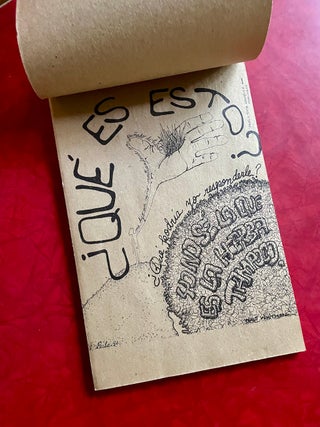 ¿QUÉ ES ESTO?
¿Que podria yo responderle?
YO NO SÉ LO QUE
ES LA HIERBA
TAMPOCO